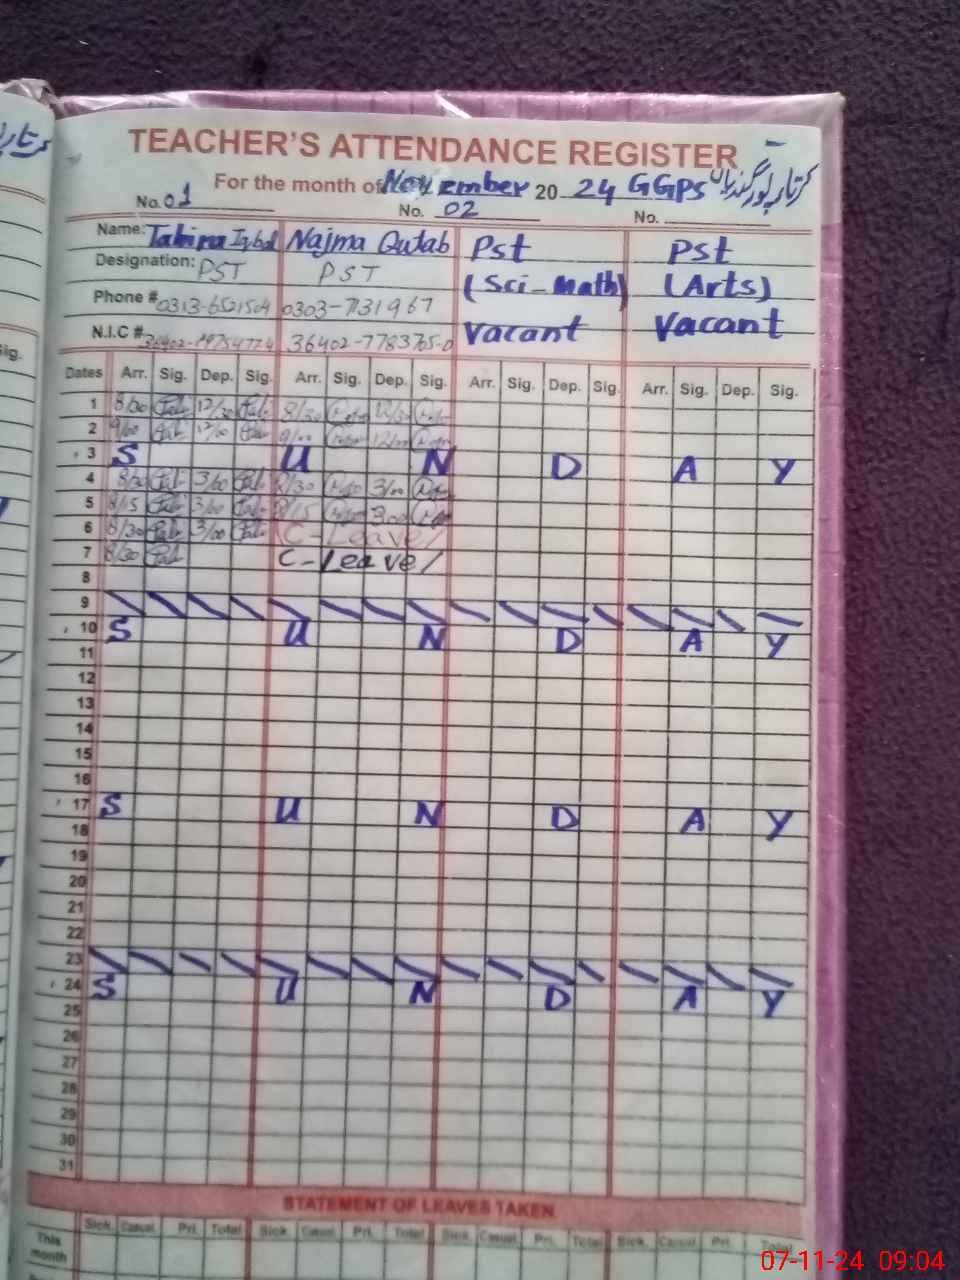 TEACHER'S ATTENDANCE REGISTER
For the month of November 20 24 GGPS کرتارپور گندراں
No. 01 No. 02 No.
Name: Tahira Iqbal Najma Qutab Pst Pst
Designation: PST PST (Sci-Math) (Arts)
Phone # 0313-6521504 0303-7131967
N.I.C # 36402-7783765-0 Vacant Vacant
Dates Arr. Sig. Dep. Sig. Arr. Sig. Dep. Sig. Arr. Sig. Dep. Sig. Arr. Sig. Dep. Sig.
1 8/30 12/30 8/30 12/30
2 9/00 12/00 9/00 12/00
3 S U N D A Y
4 8/30 3/00 8/30 3/00
5 8/15 3/00 8/15 3/00
6 8/30 3/00 C-Leave/
7 8/30 C-Leave/
8
9
10 S U N D A Y
11
12
13
14
15
16
17 S U N D A Y
18
19
20
21
22
23
24 S U N D A Y
25
26
27
28
29
30
31
STATEMENT OF LEAVES TAKEN
Sick. Casual. Pri. Total Sick. Casual. Pri. Total Sick. Casual. Pri. Total Sick. Casual. Pri. Total
This month
07-11-24 09:04